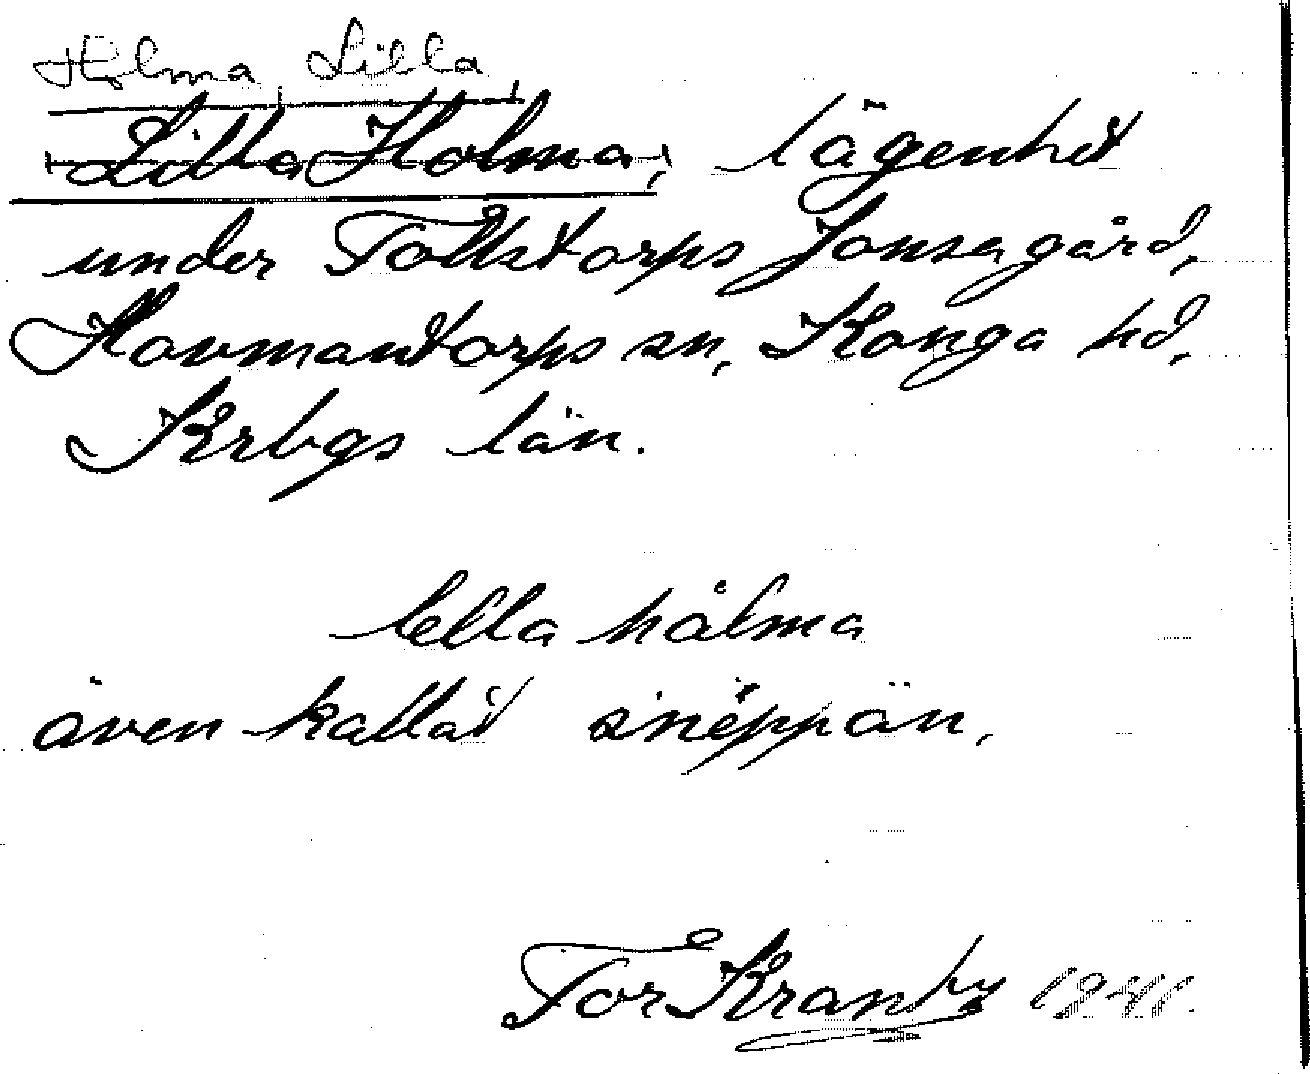 Holma, Lilla
Lilla Holma, lägenhet
under Tollstorps Jonsagård,
Hovmantorps sn, Konga hd,
Krbgs län.
lella hålma
även kallat snéppän,
Tor Krantz 1941.